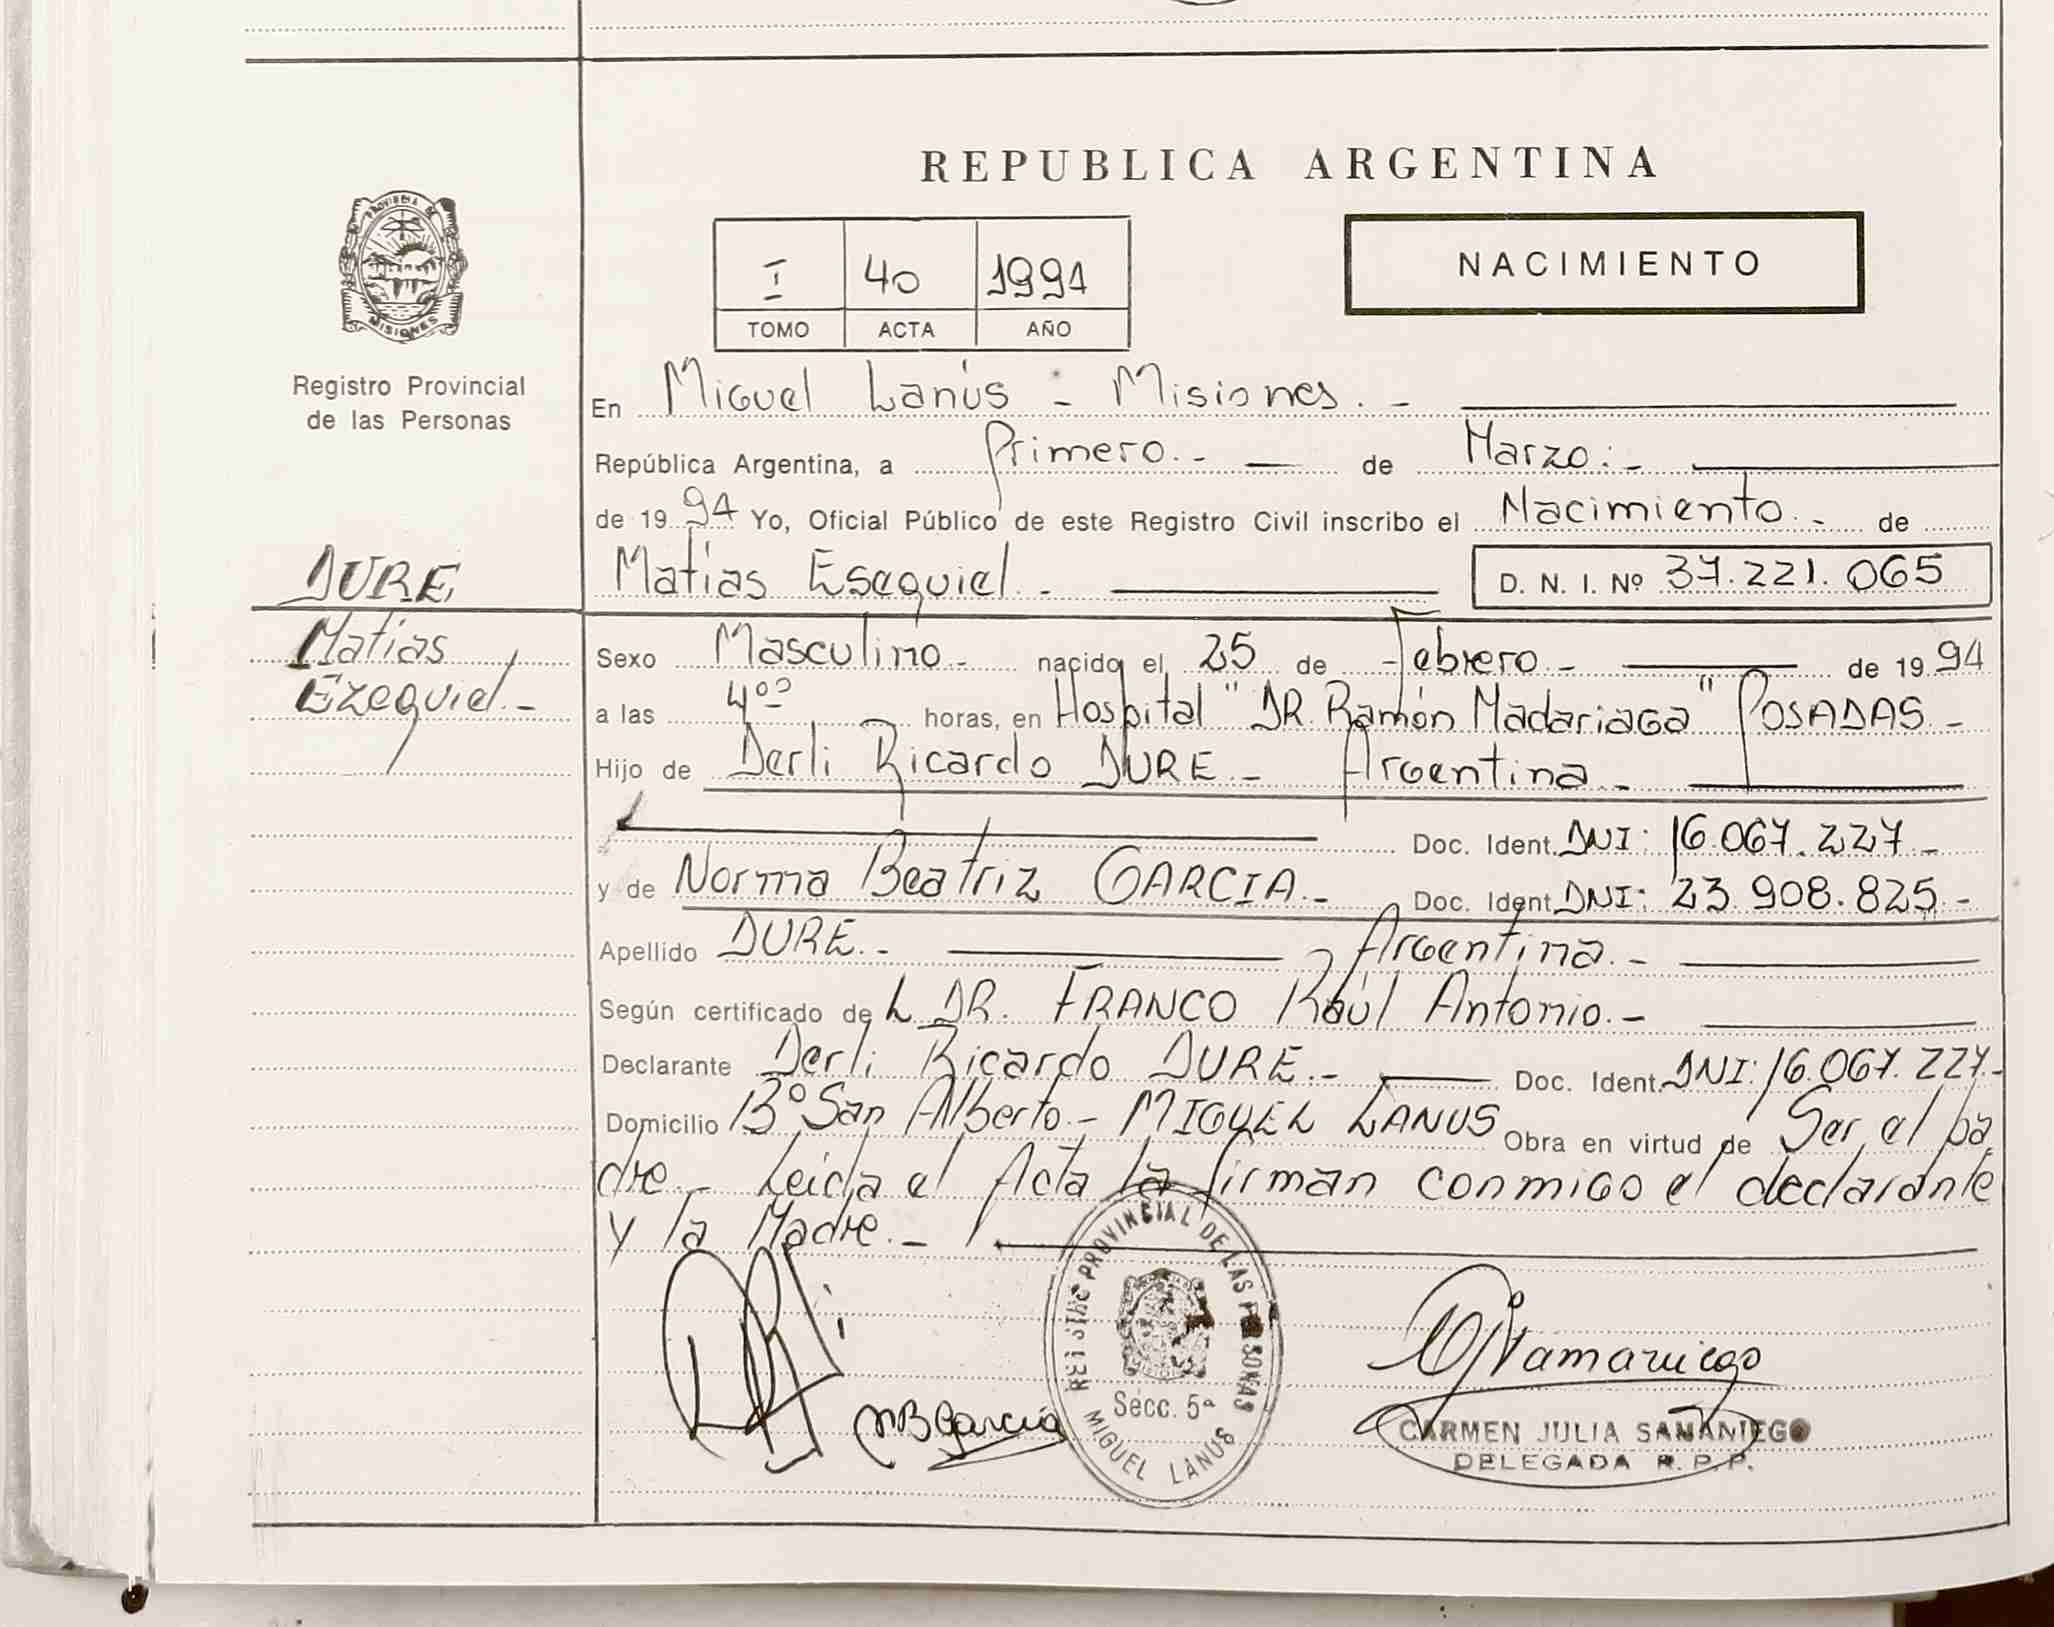 REPUBLICA ARGENTINA
PROVINCIA DE
MISIONES
Registro Provincial
de las Personas
I 40 1994
TOMO ACTA AÑO
NACIMIENTO
En Miguel Lanús - Misiones. -
República Argentina, a Primero.- de Marzo.-
de 1994 Yo, Oficial Público de este Registro Civil inscribo el Nacimiento.- de
DURE
Matías Esequiel.- D. N. I. Nº 37.221.065
Matías
Ezequiel.-
Sexo Masculino.- nacido el 25 de Febrero.- de 1994
a las 4ºº horas, en Hospital "DR. Ramón Madariaga" POSADAS.-
Hijo de Derli Ricardo DURE.- Argentina.-
Doc. Ident. DNI: 16.067.227.-
y de Norma Beatriz GARCIA.- Doc. Ident. DNI: 23.908.825.-
Apellido DURE.- Argentina.-
Según certificado de L DR. FRANCO Raúl Antonio.-
Declarante Derli Ricardo DURE.- Doc. Ident. DNI: 16.067.227.-
Domicilio Bº San Alberto.- MIGUEL LANUS Obra en virtud de Ser el pa
dre.- Leída el Acta la firman conmigo el declarante
y la Madre.-
REGISTRO PROVINCIAL DE LAS PERSONAS
Secc. 5ª
MIGUEL LANUS
NBGarcía
CARMEN JULIA SAMANIEGO
DELEGADA R. P. P.